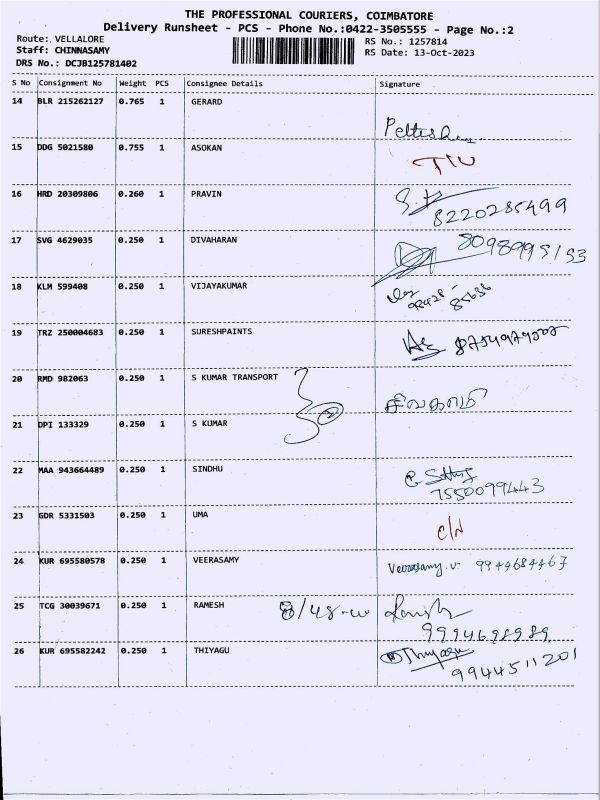 THE PROFESSIONAL COURIERS, COIMBATORE
Delivery Runsheet - PCS - Phone No.:0422-3505555 - Page No.:2
Route: VELLALORE
Staff: CHINNASAMY
DRS No.: DCJB125781402
RS No.: 1257814
RS Date: 13-Oct-2023
S No Consignment No Weight PCS Consignee Details Signature
14 BLR 215262127 0.765 1 GERARD
15 DDG 5021580 0.755 1 ASOKAN
16 HRD 20309806 0.260 1 PRAVIN
8220285499
17 SVG 4629035 0.250 1 DIVAHARAN
18 KLM 599408 0.250 1 VIJAYAKUMAR
19 TRZ 250004683 0.250 1 SURESHPAINTS
20 RMD 982063 0.250 1 S KUMAR TRANSPORT
சிவகாமி
21 DPI 133329 0.250 1 S KUMAR
22 MAA 943664489 0.250 1 SINDHU
7550099443
23 GDR 5331503 0.250 1 UMA
C/N
24 KUR 695580578 0.250 1 VEERASAMY Veerasamy.v. 9944684467
25 TCG 30039671 0.250 1 RAMESH
9994698989
26 KUR 695582242 0.250 1 THIYAGU Thiyagu
9944511201